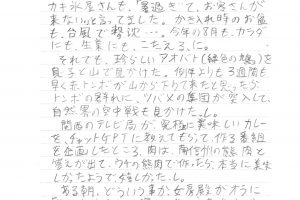 カキ氷屋さんも、「暑過ぎて、お客さんが
来ない」と言ってました。かき入れ時のお盆
も、台風で撃沈…。今年の8月も、カラダ
にも、生業にも、こたえる、に。
それでも、珍らしいアオバト(緑色の鳩)を
息子と山で見かけた。例年よりも3週間も
早く赤トンボが山から下りて来たと思ったら
トンボの群れに、ツバメの集団が突入して、
自然界の空中戦も見かけた…し。
関西のテレビ局が、究極に美味しいカレー
を、チャットGPTに教えてもらって、作る番組
を企画したところ、肉は、南信州の熊肉と
答えが出て、ウチの熊肉で作ったら、本当に美味
しかったようで、嬉しかった…し。
ある朝、どういう事か、女房殿がオラに